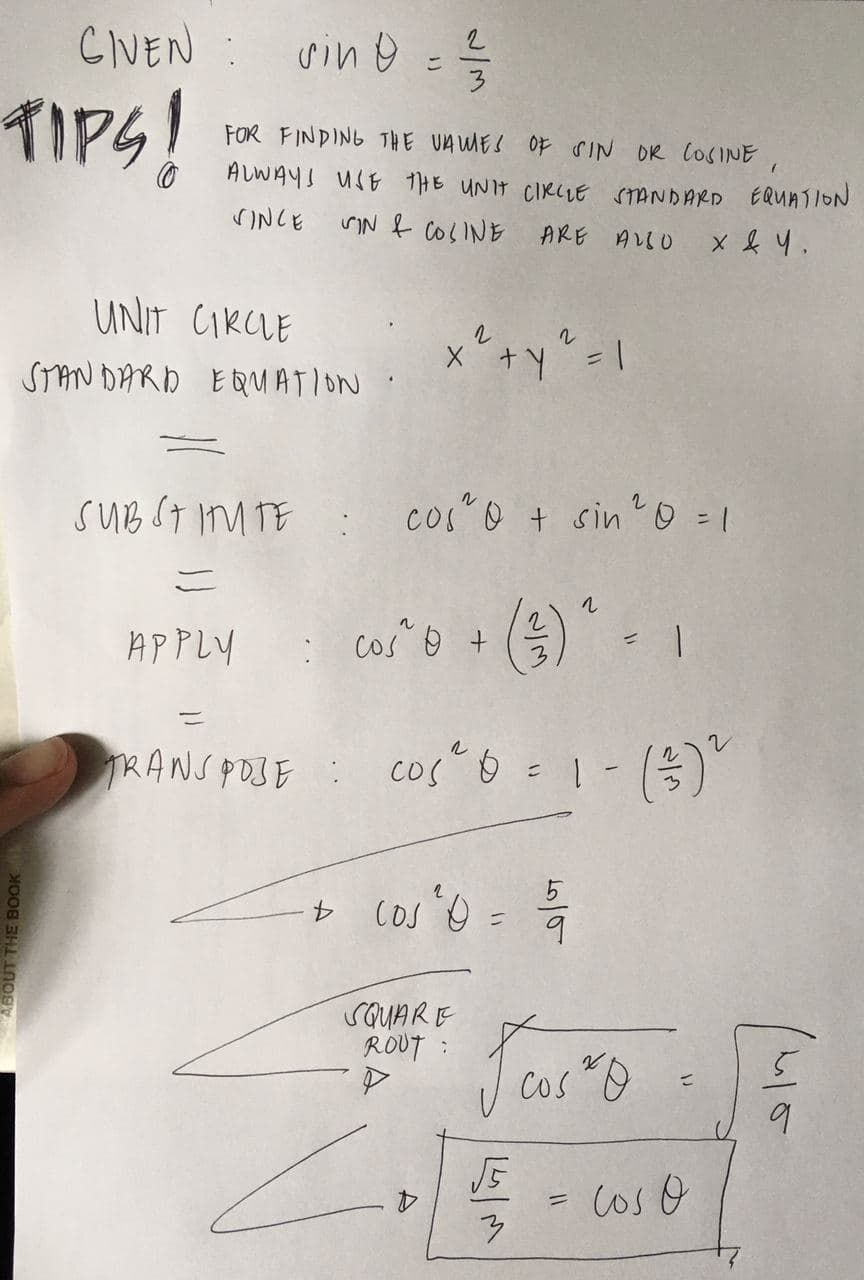 GIVEN : sin θ = 2/3
TIPS!
FOR FINDING THE VALUES OF SIN OR COSINE,
ALWAYS USE THE UNIT CIRCLE STANDARD EQUATION
SINCE SIN & COSINE ARE ALSO X & Y.
UNIT CIRCLE
STANDARD EQUATION : x² + y² = 1
SUBSTITUTE : cos²θ + sin²θ = 1
APPLY : cos²θ + (2/3)² = 1
TRANSPOSE : cos²θ = 1 - (2/3)²
cos²θ = 5/9
SQUARE
ROOT :
√cos²θ = √5/9
√5/3 = cos θ
ABOUT THE BOOK